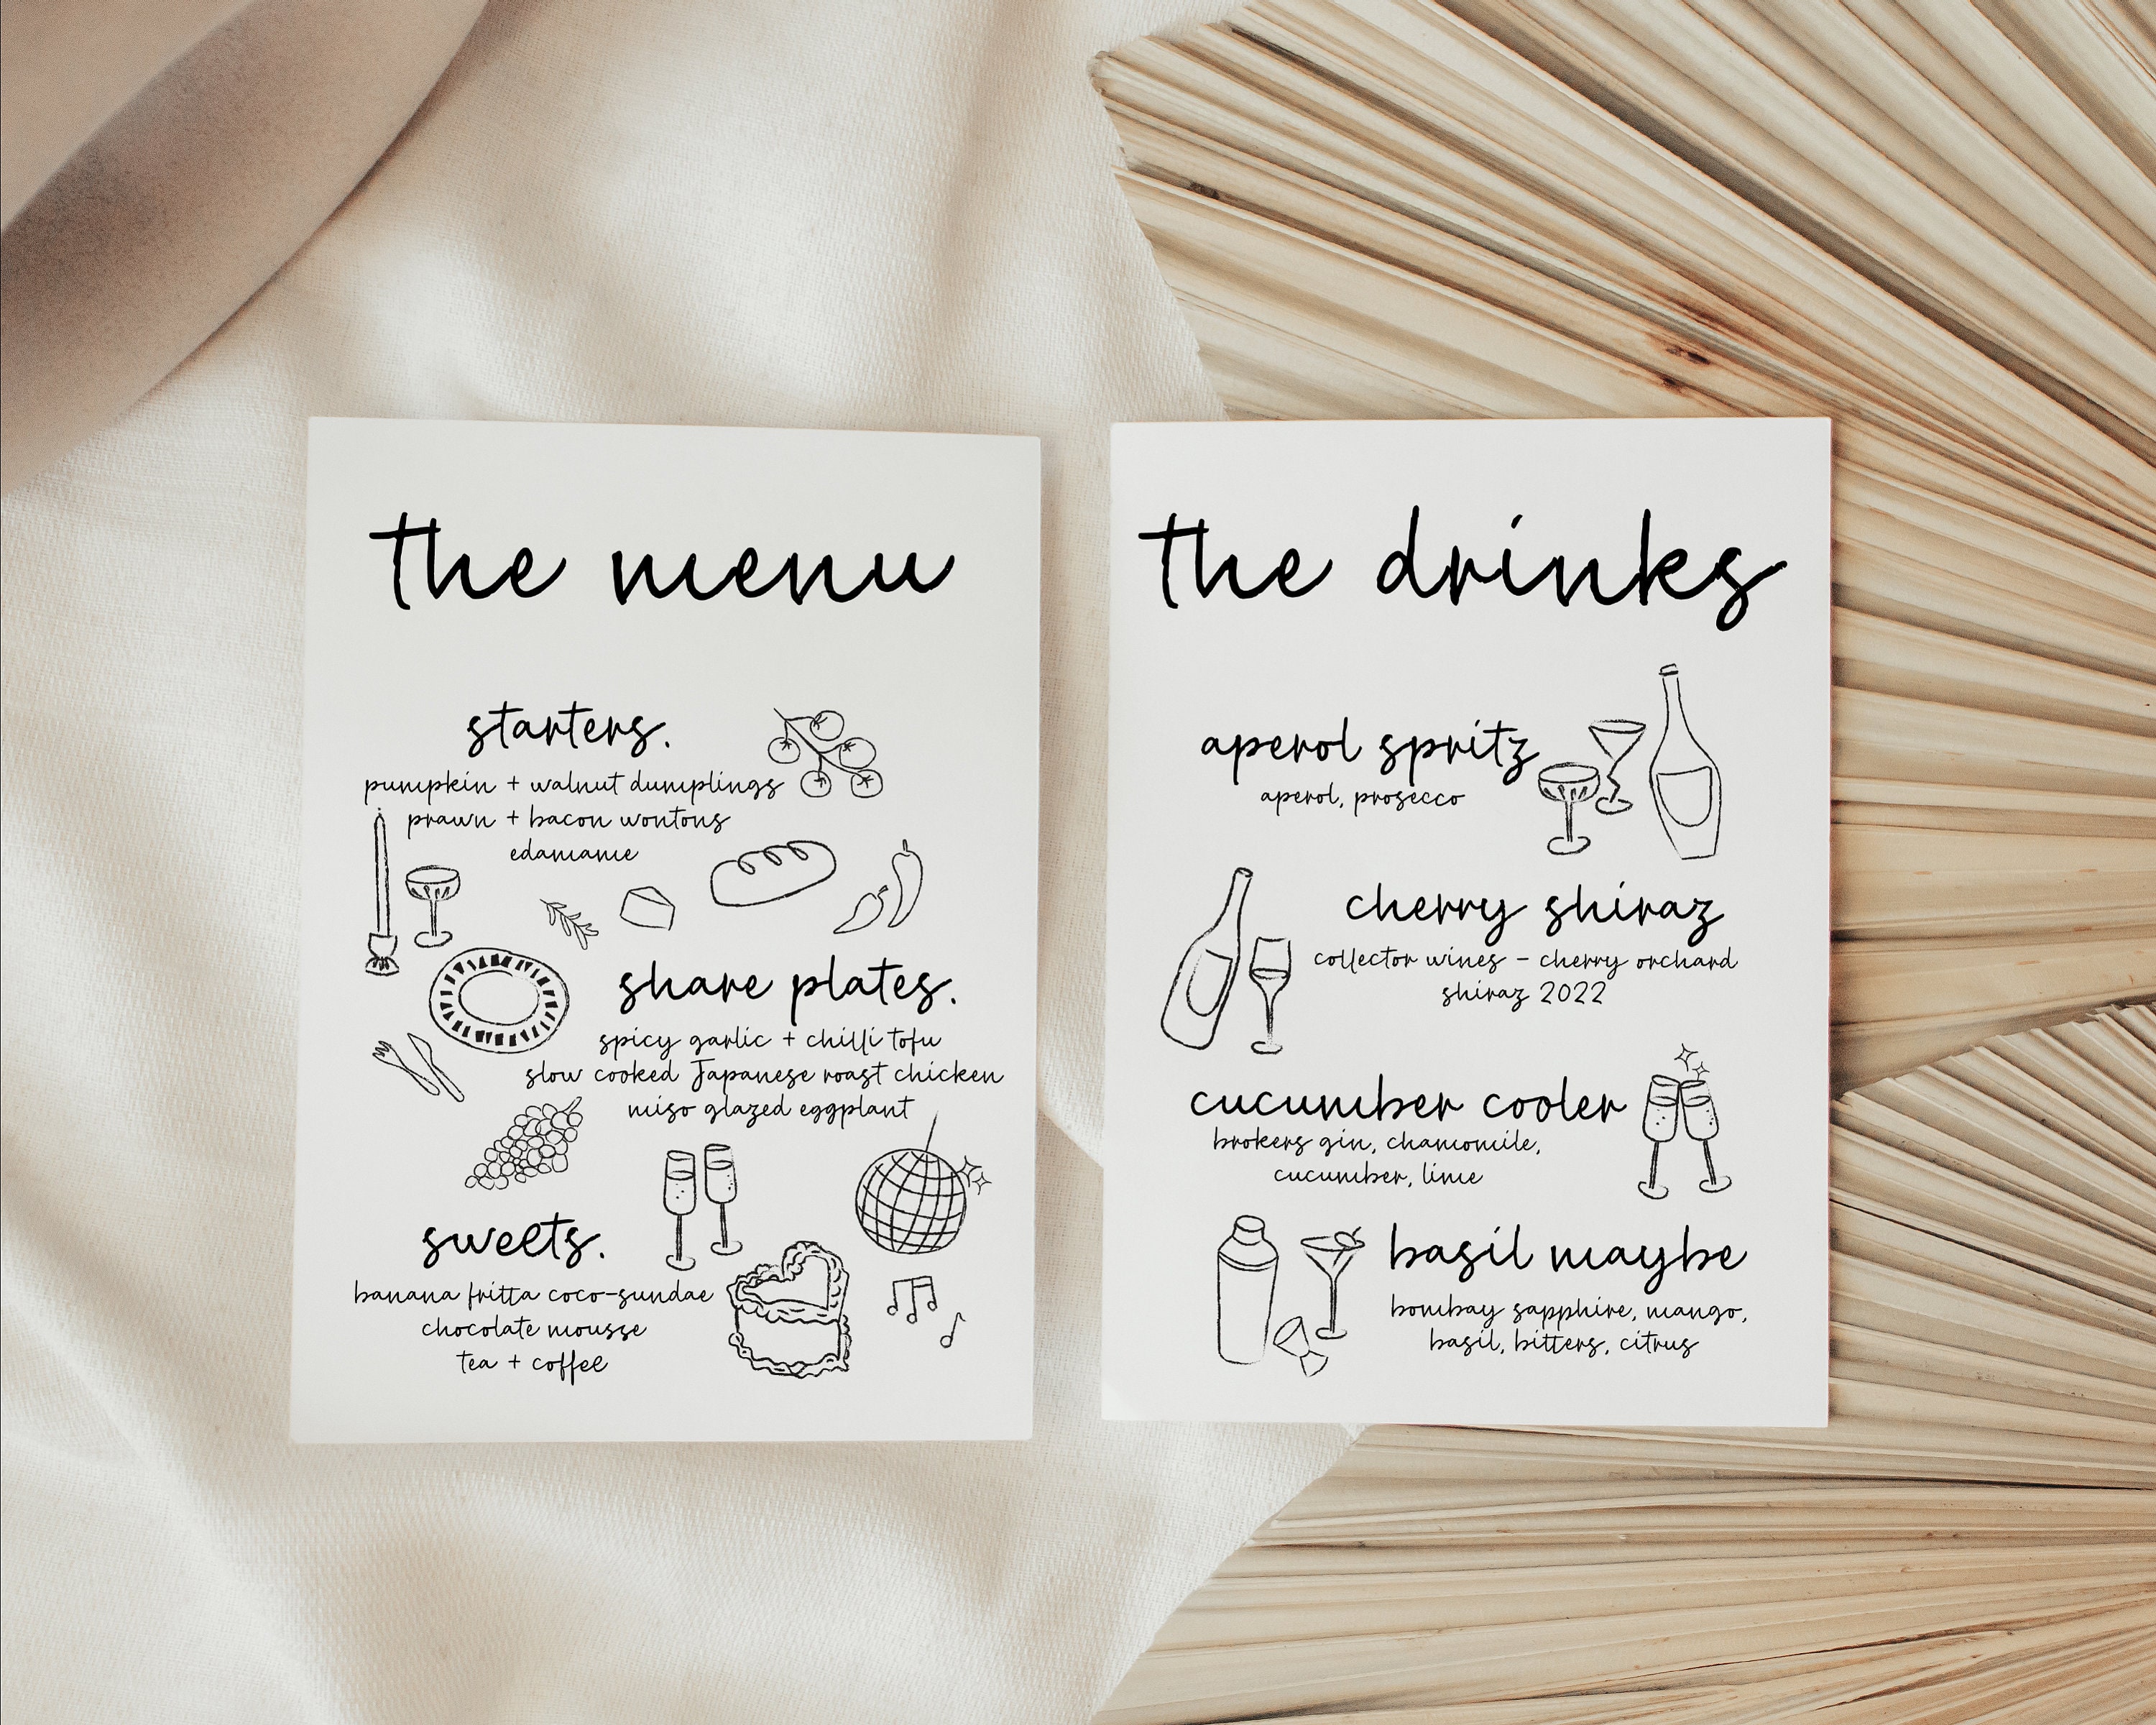 the menu
starters.
pumpkin + walnut dumplings
prawn + bacon wontons
edamame
share plates.
spicy garlic + chilli tofu
slow cooked Japanese roast chicken
miso glazed eggplant
sweets.
banana fritta coco-sundae
chocolate mousse
tea + coffee
the drinks
aperol spritz
aperol, prosecco
cherry shiraz
collector wines - cherry orchard
shiraz 2022
cucumber cooler
brokers gin, chamomile,
cucumber, lime
basil maybe
bombay sapphire, mango,
basil, bitters, citrus